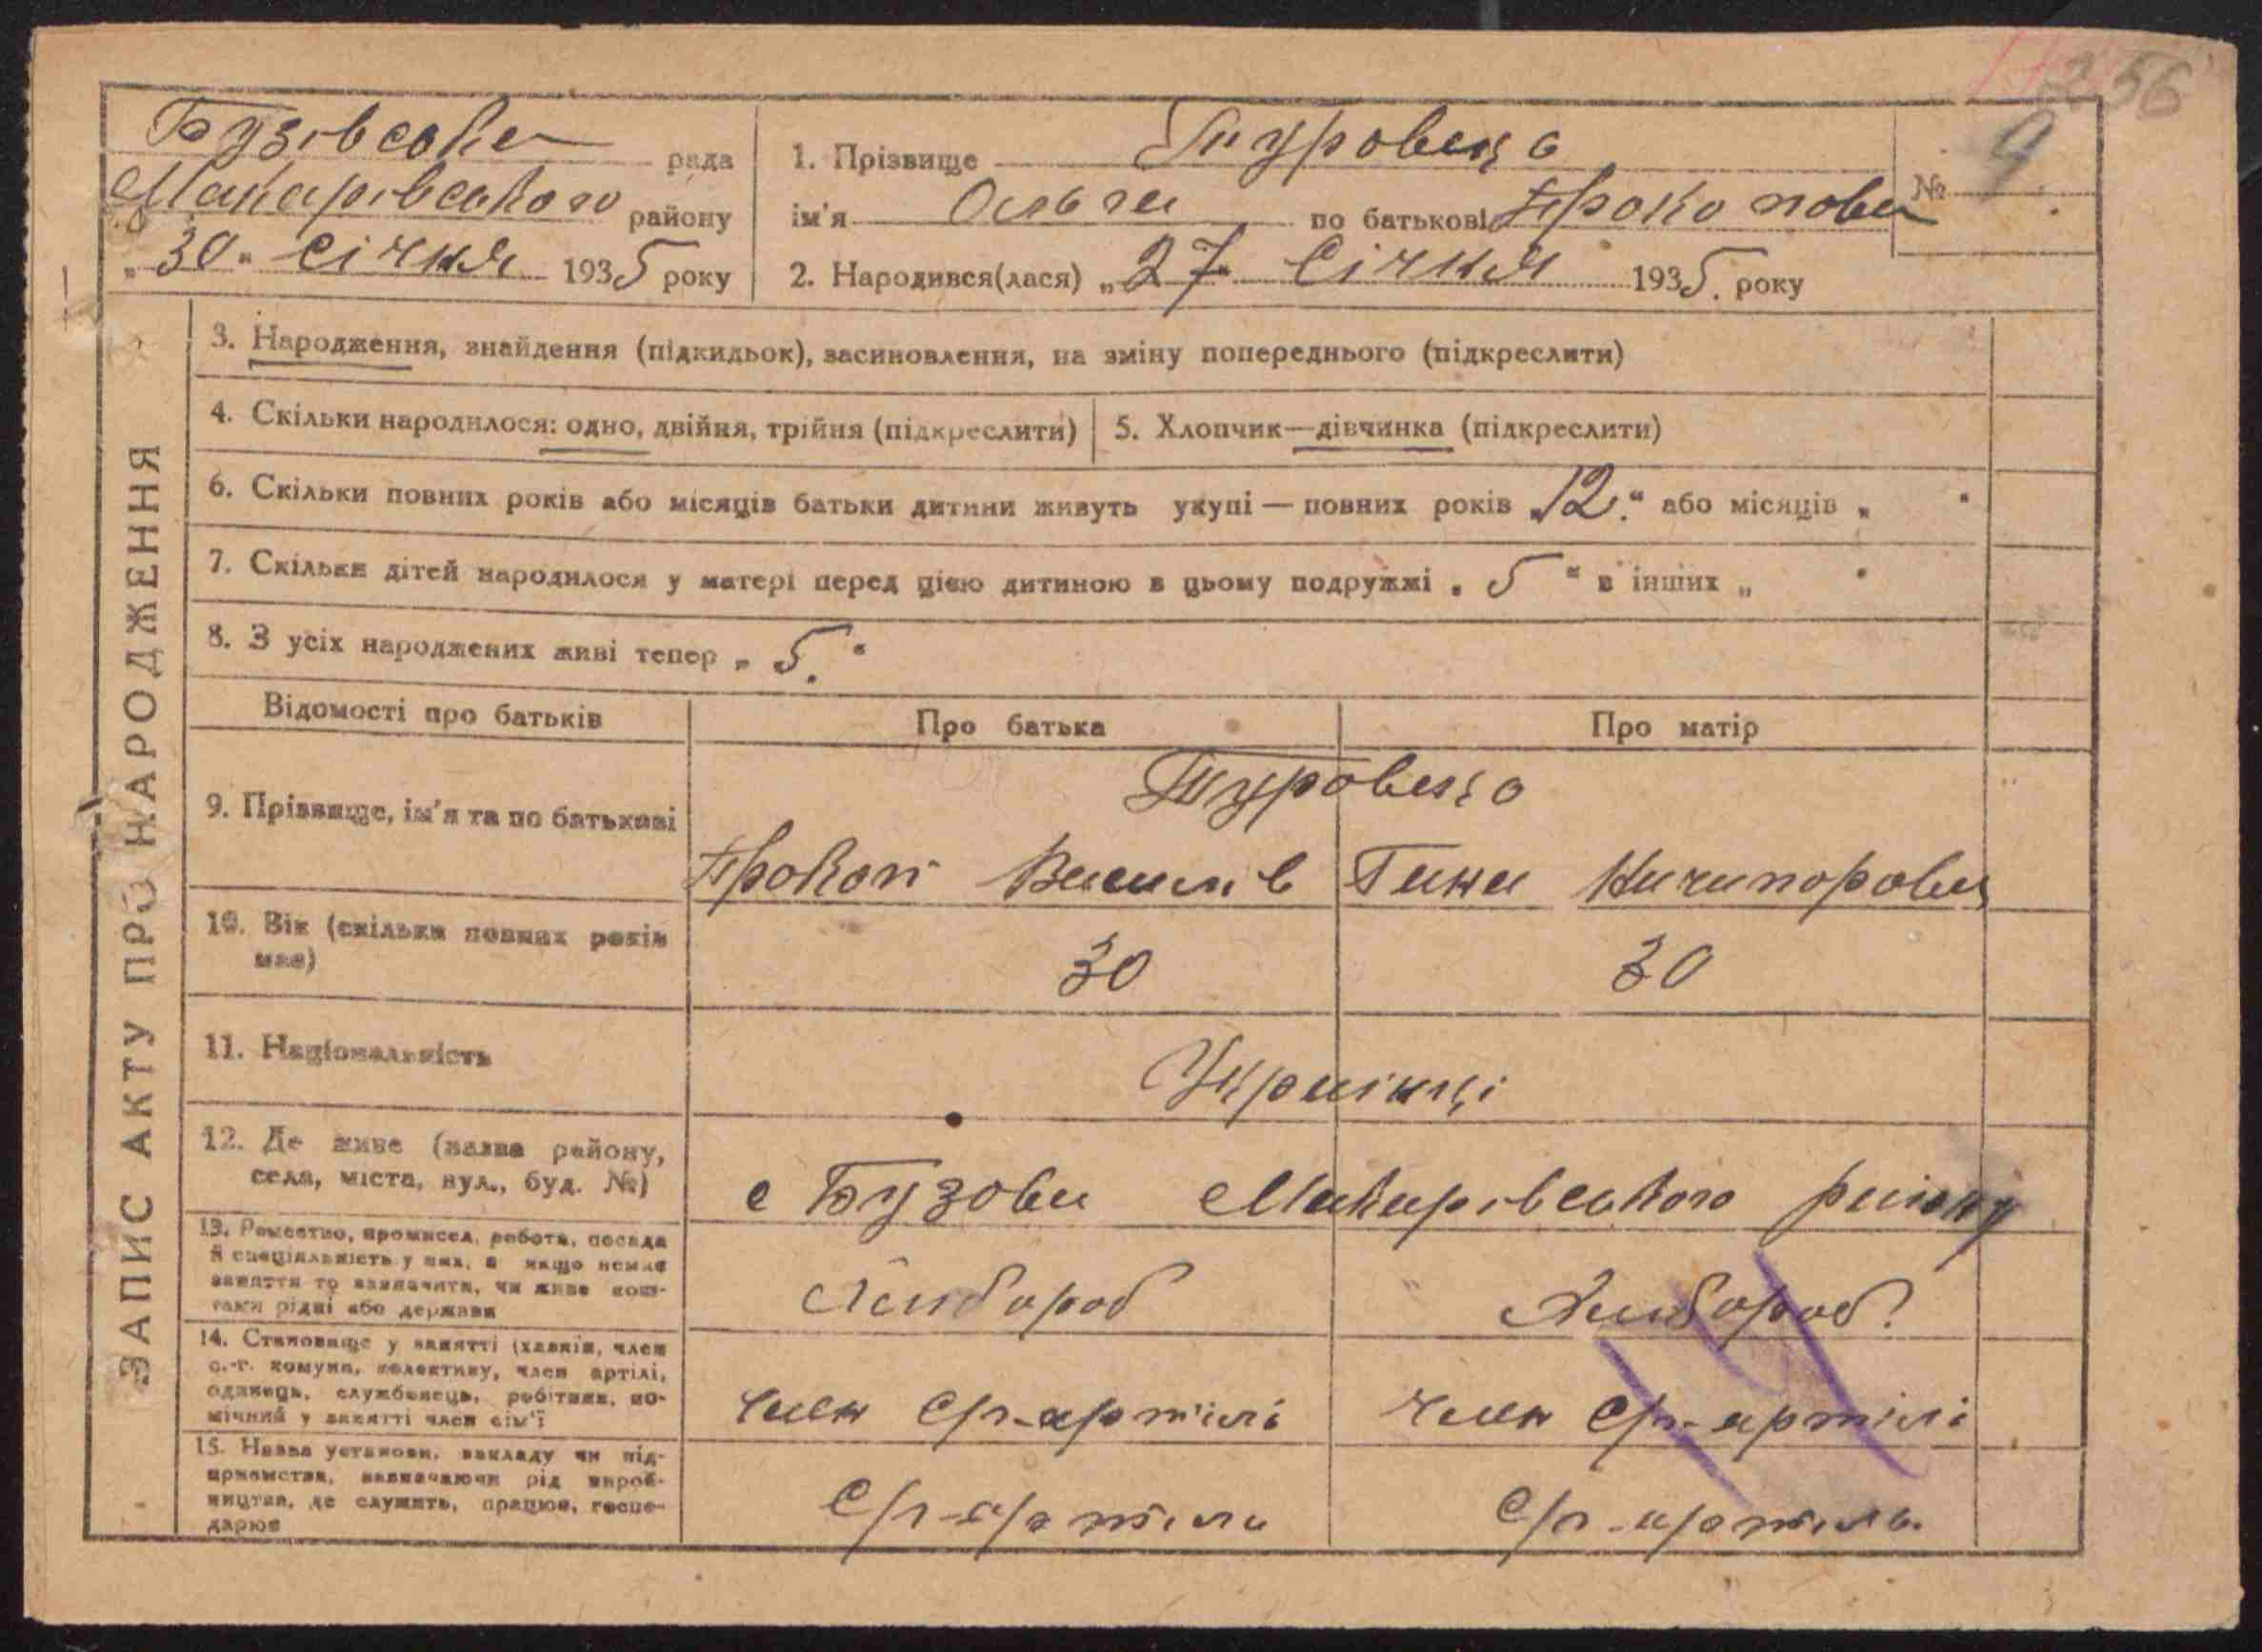 256
Бузівська рада
Макарівського району
„30“ січня 1935 року
1. Прізвище Туровець
ім'я Ольга по батькові Прокопова
№ 9
2. Народився(лася) „27 Січня 1935. року
ЗАПИС АКТУ ПРО НАРОДЖЕННЯ
3. Народження, знайдення (підкидьок), засиновлення, на зміну попереднього (підкреслити)
4. Скільки народилося: одно, двійня, трійня (підкреслити)
5. Хлопчик—дівчинка (підкреслити)
6. Скільки повних років або місяців батьки дитини живуть укупі — повних років „12.“ або місяців „ “
7. Скільки дітей народилося у матері перед цією дитиною в цьому подружжі „ 5 “ в інших „ “
8. З усіх народжених живі тепер „ 5. “
Відомості про батьків
Про батька
Про матір
9. Прізвище, ім'я та по батькові
Туровець
Прокоп Василів
Ганна Ничипорова
10. Вік (скільки повних років
має)
30
30
11. Національність
Українці
12. Де живе (назва району,
села, міста, вул., буд. №)
с Бузова Макарівського району
13. Ремество, промисел, робота, посада
й спеціяльність у них, а якщо немає
заняття то зазначити, чи живе кош-
тами рідні або держави
Хлібороб
Хлібороб
14. Становище у занятті (хазяїн, член
с.-г. комуни, колективу, член артілі,
одинець, службовець, робітник, по-
мічний у занятті член сім'ї
член с/г-артілі
член с/г-артілі
15. Назва установи, закладу чи під-
приємства, зазначаючи рід вироб-
ництва, де служить, працює, госпо-
дарює
с/г-артіль
с/г-артіль.